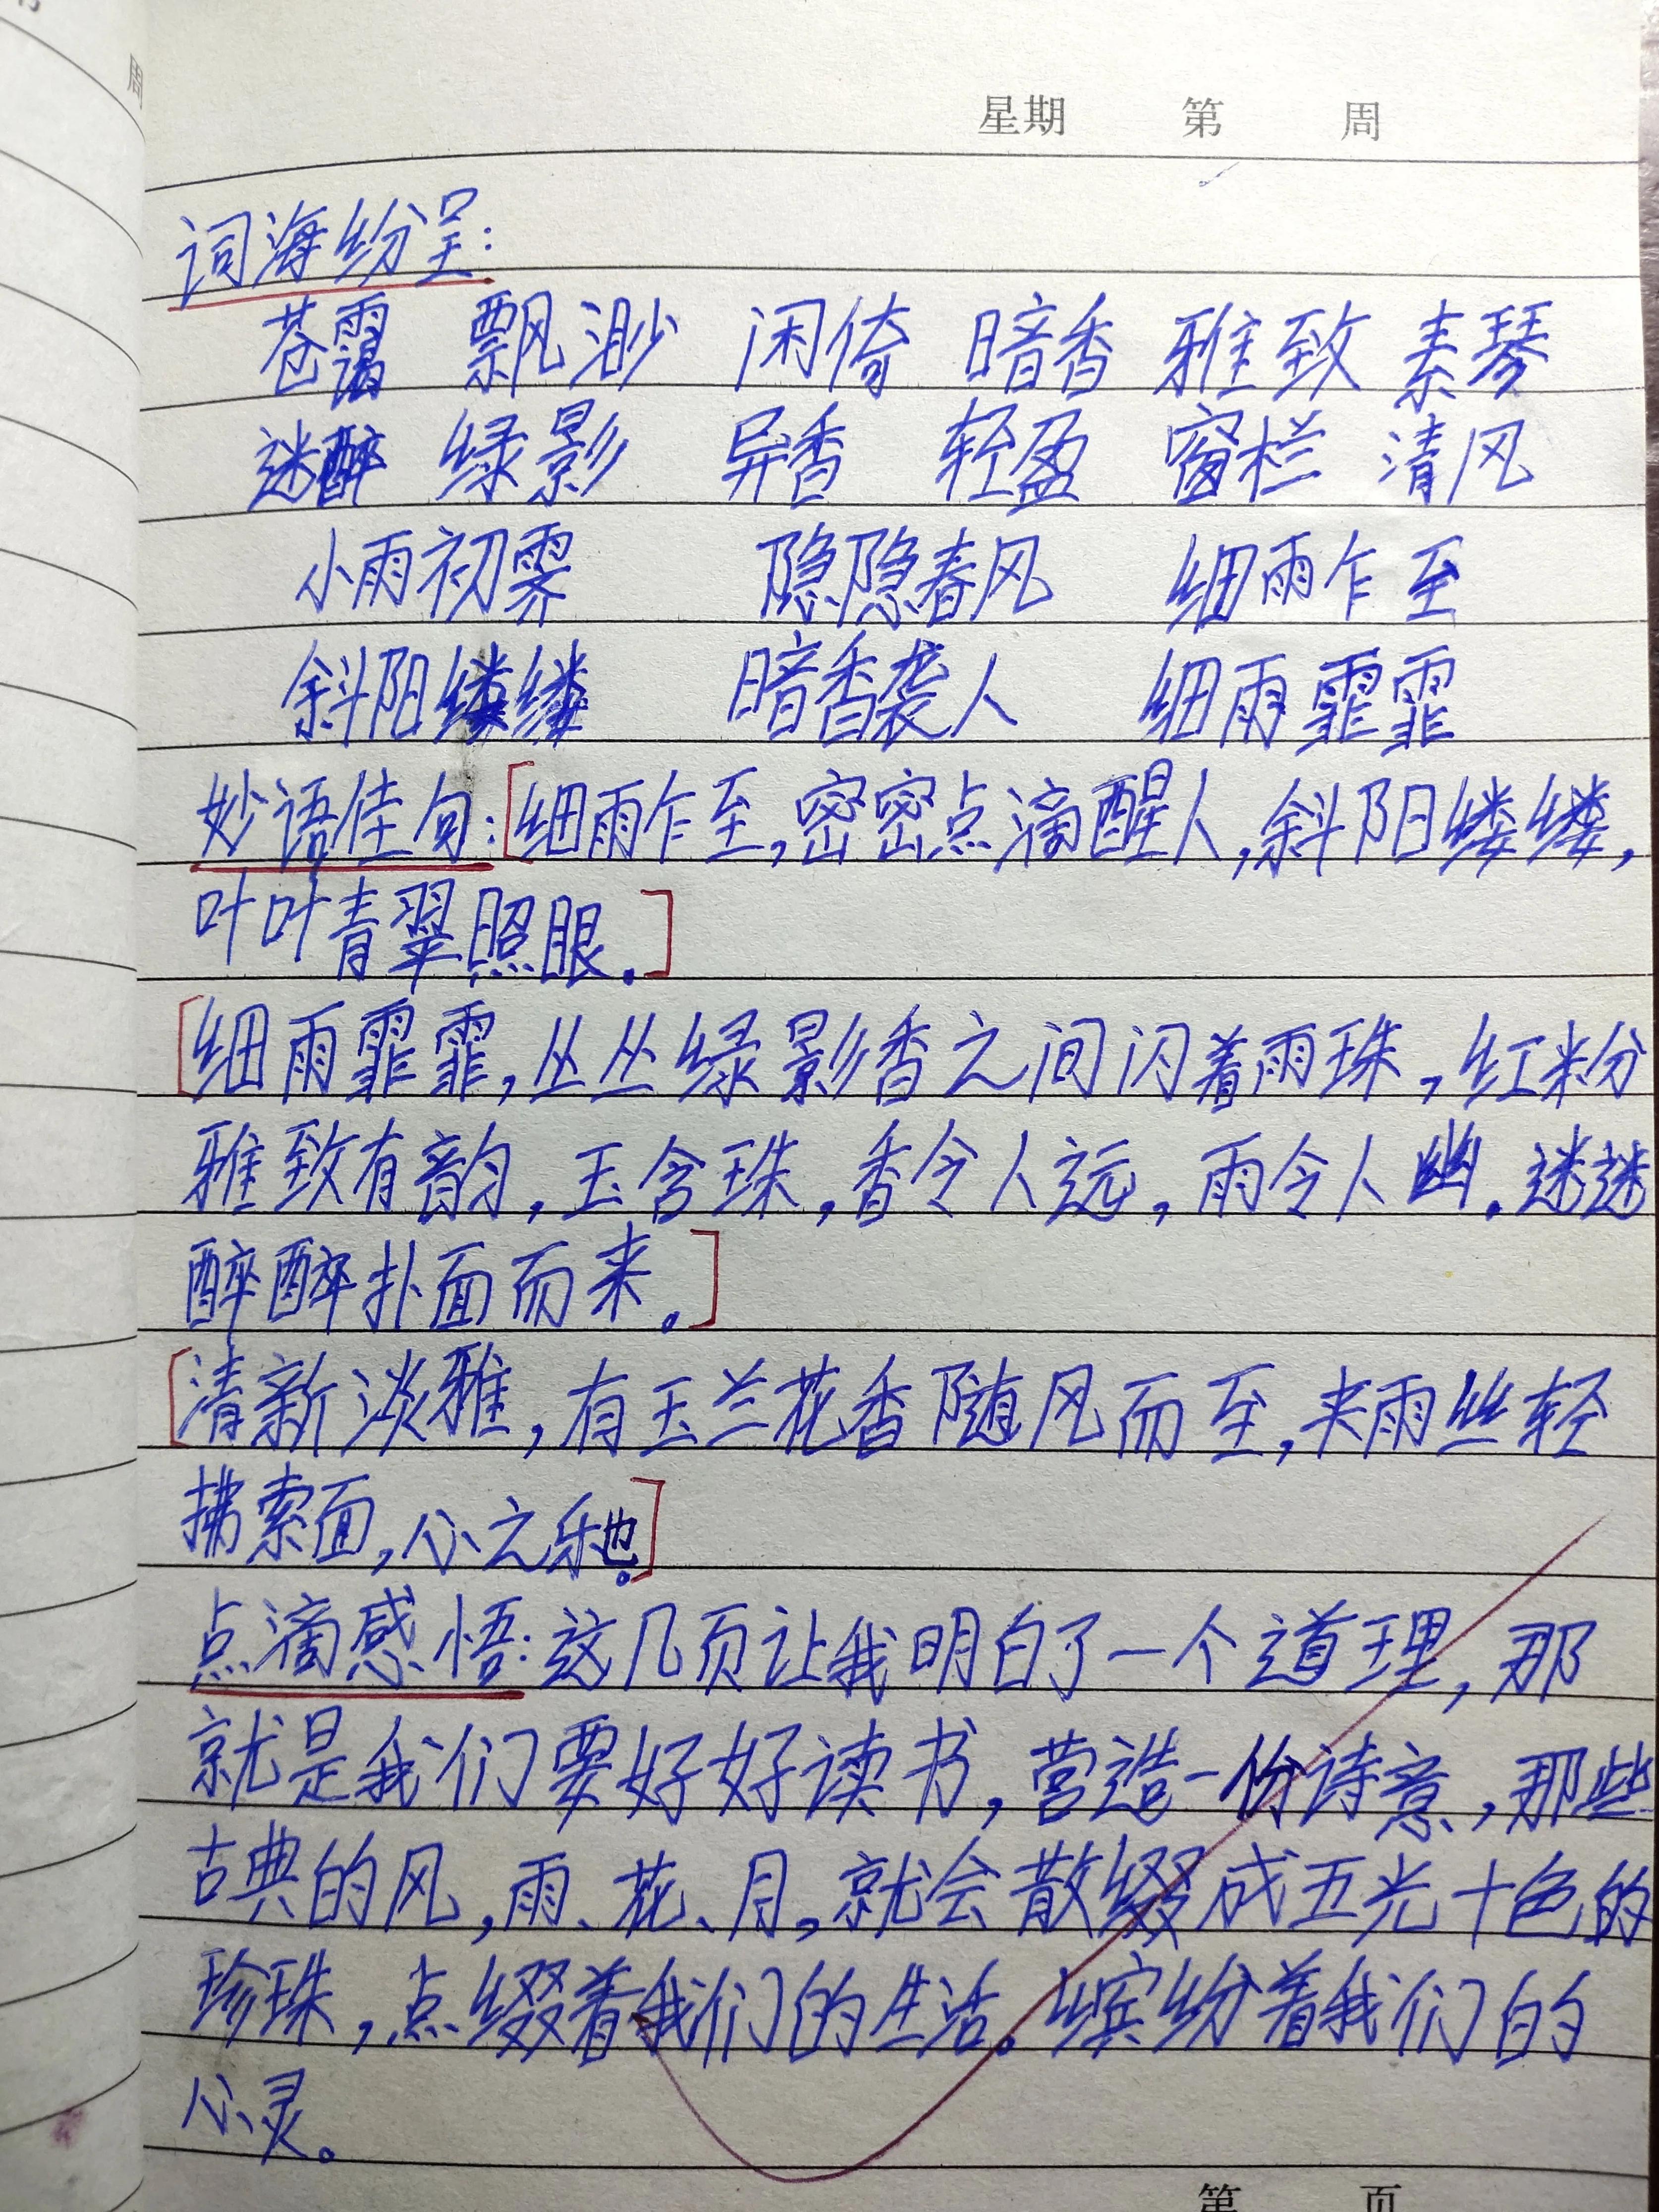 周
星期 第 周
词海纷呈:
苍霭 飘渺 闲倚 暗香 雅致 素琴
迷醉 绿影 异香 轻盈 窗栏 清风
小雨初霁 隐隐春风 细雨乍至
斜阳缕缕 暗香袭人 细雨霏霏
妙语佳句:[细雨乍至,密密点滴醒人,斜阳缕缕,
叶叶青翠照眼。]
[细雨霏霏,丛丛绿影香之间闪着雨珠,红粉
雅致有韵,玉含珠,香令人远,雨令人幽。迷迷
醉醉扑面而来。]
[清新淡雅,有玉兰花香随风而至,来雨丝轻
拂索面,心之乐也。]
点滴感悟:这几页让我明白了一个道理,那
就是我们要好好读书,营造一份诗意,那些
古典的风,雨、花、月,就会散缀成五光十色的
珍珠,点缀着我们的生活。缤纷着我们的
心灵。
第 页